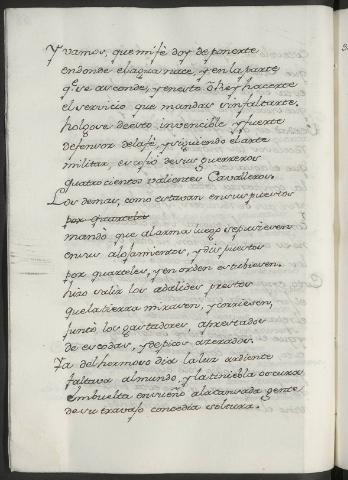 Y vamos, que mi fè doy de ponerte
endonde el agua nace, y en la parte
q.e se asconde, y en esto ô Rey hacerte
el servicio que mandas sin faltarte.
holgose de esto invencible y fuerte
defensor de la fè, y siguiendo el arte
militar, escogió de sus guerreros
quatrocientos valientes Cavalleros.
Los demas, como estavan en sus puestos
por quarteles
mandò que al arma luego se pusiesen
en sus alojamientos, y dispuestos
por quarteles, y en orden estubiesen.
hizo salir los adalides prestos
que la tierra mirasen, y corriesen,
juntò los gastadores, aprestados
de escodas, y de picos azerados.
Ya del hermoso dia la luz ardiente
faltava al mundo, y la tiniebla oscura
embuelta en sueño a la cansada gente
de su travajo concedia soltura.